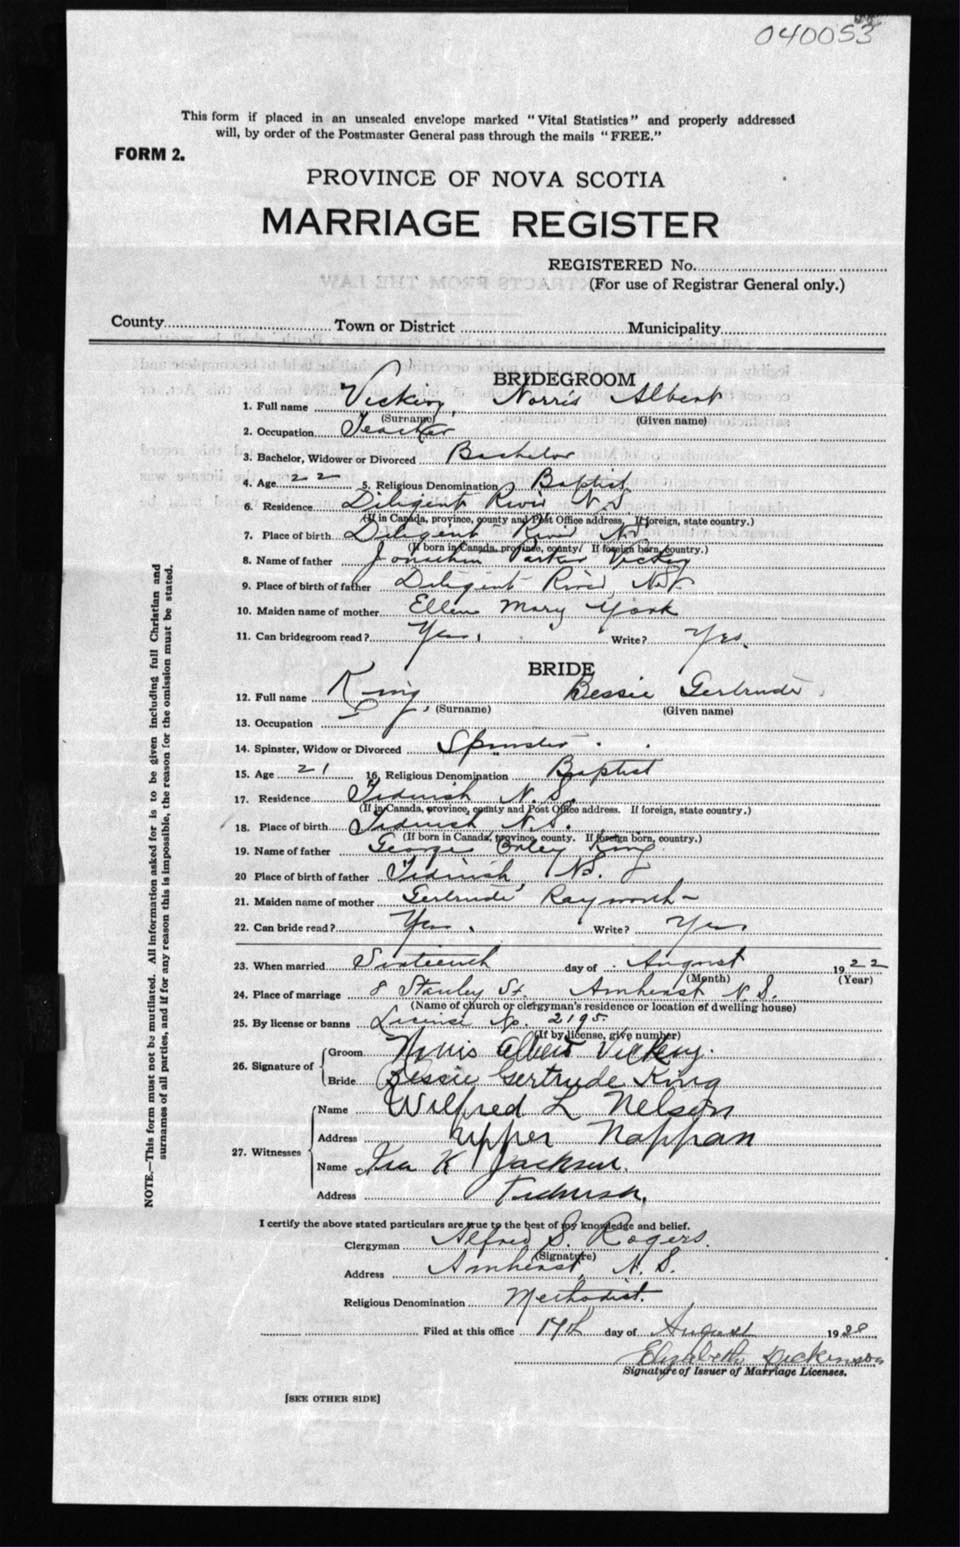 040053
This form if placed in an unsealed envelope marked "Vital Statistics" and properly addressed
will, by order of the Postmaster General pass through the mails "FREE."
FORM 2.
PROVINCE OF NOVA SCOTIA
MARRIAGE REGISTER
REGISTERED No.
(For use of Registrar General only.)
County Town or District Municipality
BRIDEGROOM
1. Full name Vickery, Norris Albert
(Surname) (Given name)
2. Occupation Teacher
3. Bachelor, Widower or Divorced Bachelor
4. Age 22 5. Religious Denomination Baptist
6. Residence Diligent River N.S.
(If in Canada, province, county and Post Office address. If foreign, state country.)
7. Place of birth Diligent River N.S.
(If born in Canada, province, county. If foreign born, country.)
8. Name of father Jonathan Parker Vickery
9. Place of birth of father Diligent River N.S.
10. Maiden name of mother Ellen Mary York
11. Can bridegroom read? Yes. Write? Yes.
BRIDE
12. Full name King, Bessie Gertrude
(Surname) (Given name)
13. Occupation
14. Spinster, Widow or Divorced Spinster
15. Age 21 16. Religious Denomination Baptist
17. Residence Tidnish N.S.
(If in Canada, province, county and Post Office address. If foreign, state country.)
18. Place of birth Tidnish N.S.
(If born in Canada, province, county. If foreign born, country.)
19. Name of father George King
20 Place of birth of father Tidnish, N.S.
21. Maiden name of mother Gertrude Rayworth
22. Can bride read? Yes. Write? Yes.
23. When married Sixteenth day of August 1922
(Month) (Year)
24. Place of marriage 8 Stanley St. Amherst N.S.
(Name of church or clergyman's residence or location of dwelling house)
25. By license or banns License No. 2195
(If by license, give number)
26. Signature of Groom Norris Albert Vickery.
Bride Bessie Gertrude King
27. Witnesses Name Wilfred L Nelson
Address Upper Nappan
Name K Jackson.
Address Tidnish.
I certify the above stated particulars are true to the best of my knowledge and belief.
Clergyman Alfred S. Rogers.
(Signature)
Address Amherst, N.S.
Religious Denomination Methodist.
Filed at this office 17th day of August 1922
Elizabeth Dickinson
Signature of Issuer of Marriage Licenses.
[SEE OTHER SIDE]
NOTE.—This form must not be mutilated. All information asked for is to be given including full Christian and
surnames of all parties, and if for any reason this is impossible, the reason for the omission must be stated.